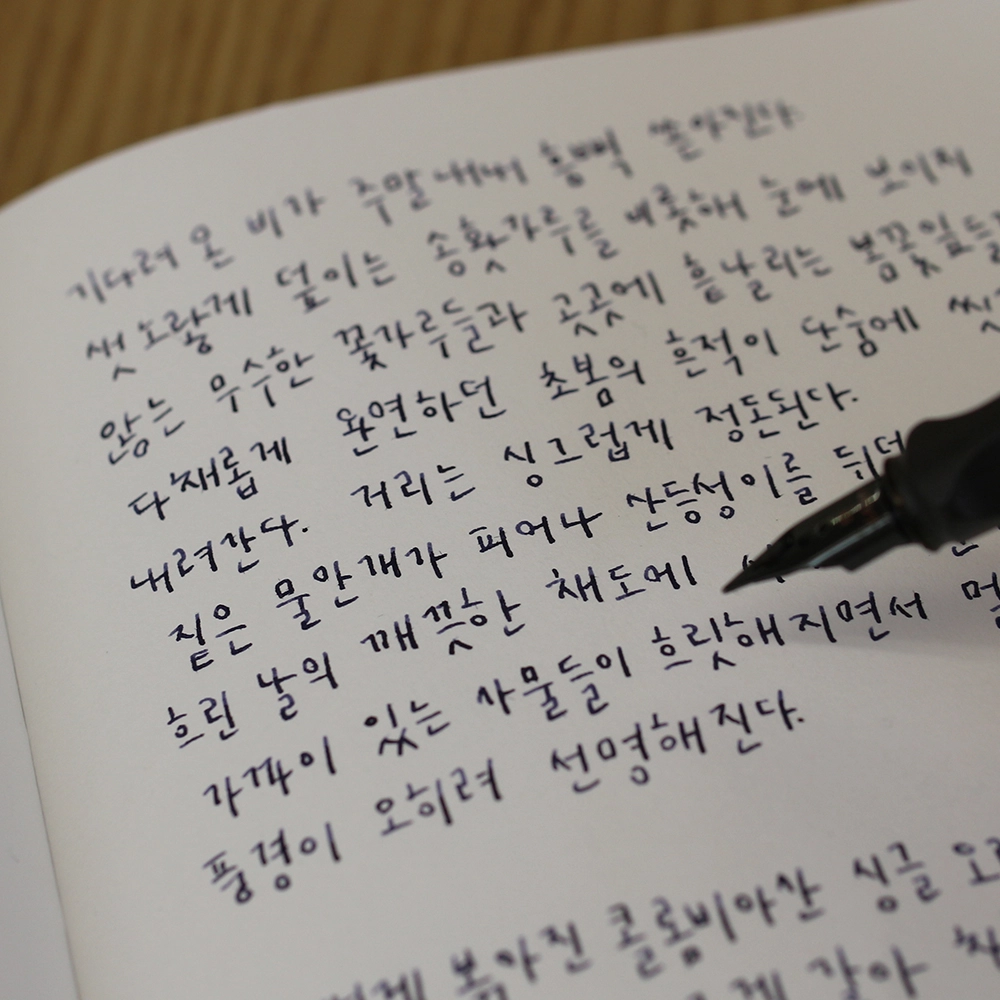 기다려 온 비가 주말 내내 흠뻑 쏟아진다.
샛노랗게 덮이는 송홧가루를 비롯해 눈에 보이지
않는 무수한 꽃가루들과 곳곳에 흩날리는 봄꽃잎들
다채롭게 완연하던 초봄의 흔적이 단숨에
내려간다. 거리는 싱그럽게 정돈된다.
짙은 물안개가 피어나 산등성이를
흐린 날의 깨끗한 채도에
가까이 있는 사물들이 흐릿해지면서
풍경이 오히려 선명해진다.
볶아진 콜롬비아산 싱글
갈아